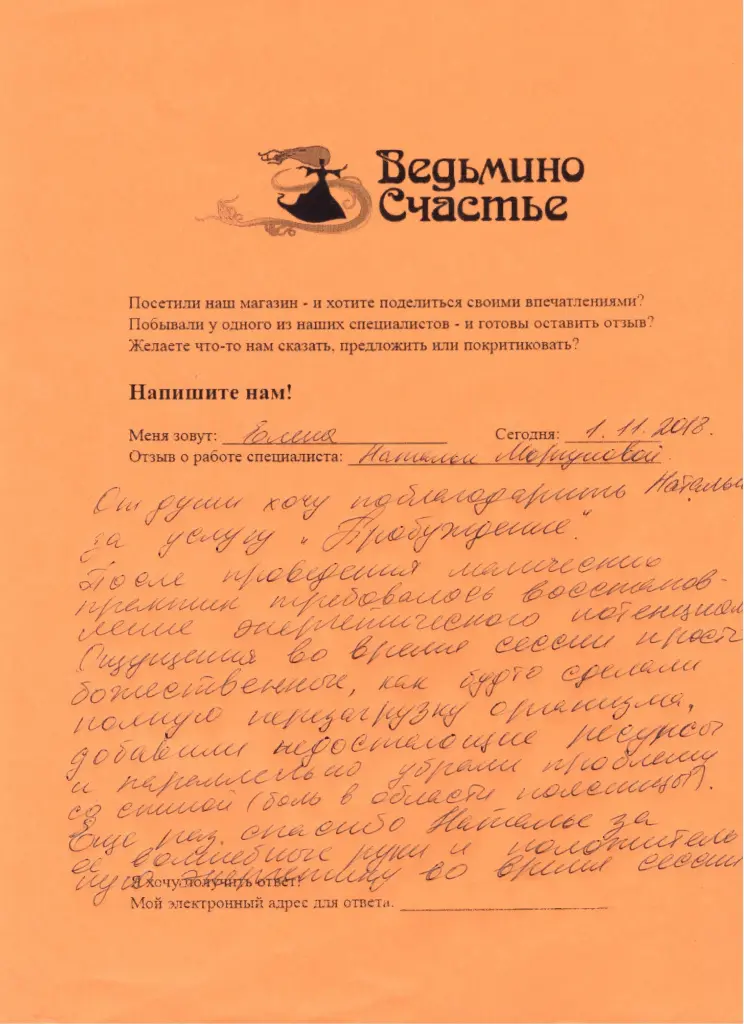 Ведьмино
Счастье
Посетили наш магазин - и хотите поделиться своими впечатлениями?
Побывали у одного из наших специалистов - и готовы оставить отзыв?
Желаете что-то нам сказать, предложить или покритиковать?
Напишите нам!
Меня зовут: Елена Сегодня: 1.11.2018.
Отзыв о работе специалиста: Натальи Моргуновой.
От души хочу поблагодарить Наталью
за услугу "Пробуждение".
После проведения магических
практик требовалось восстанов-
ление энергетического потенциала
Ощущения во время сессии просто
божественные, как будто сделали
полную перезагрузку организма,
добавили недостающие ресурсы
и параллельно убрали проблему
со спиной (боль в области поясницы).
Еще раз спасибо Наталье за
её волшебные руки и положитель
ную энергетику во время сессии
Я хочу получить ответ!
Мой электронный адрес для ответа.